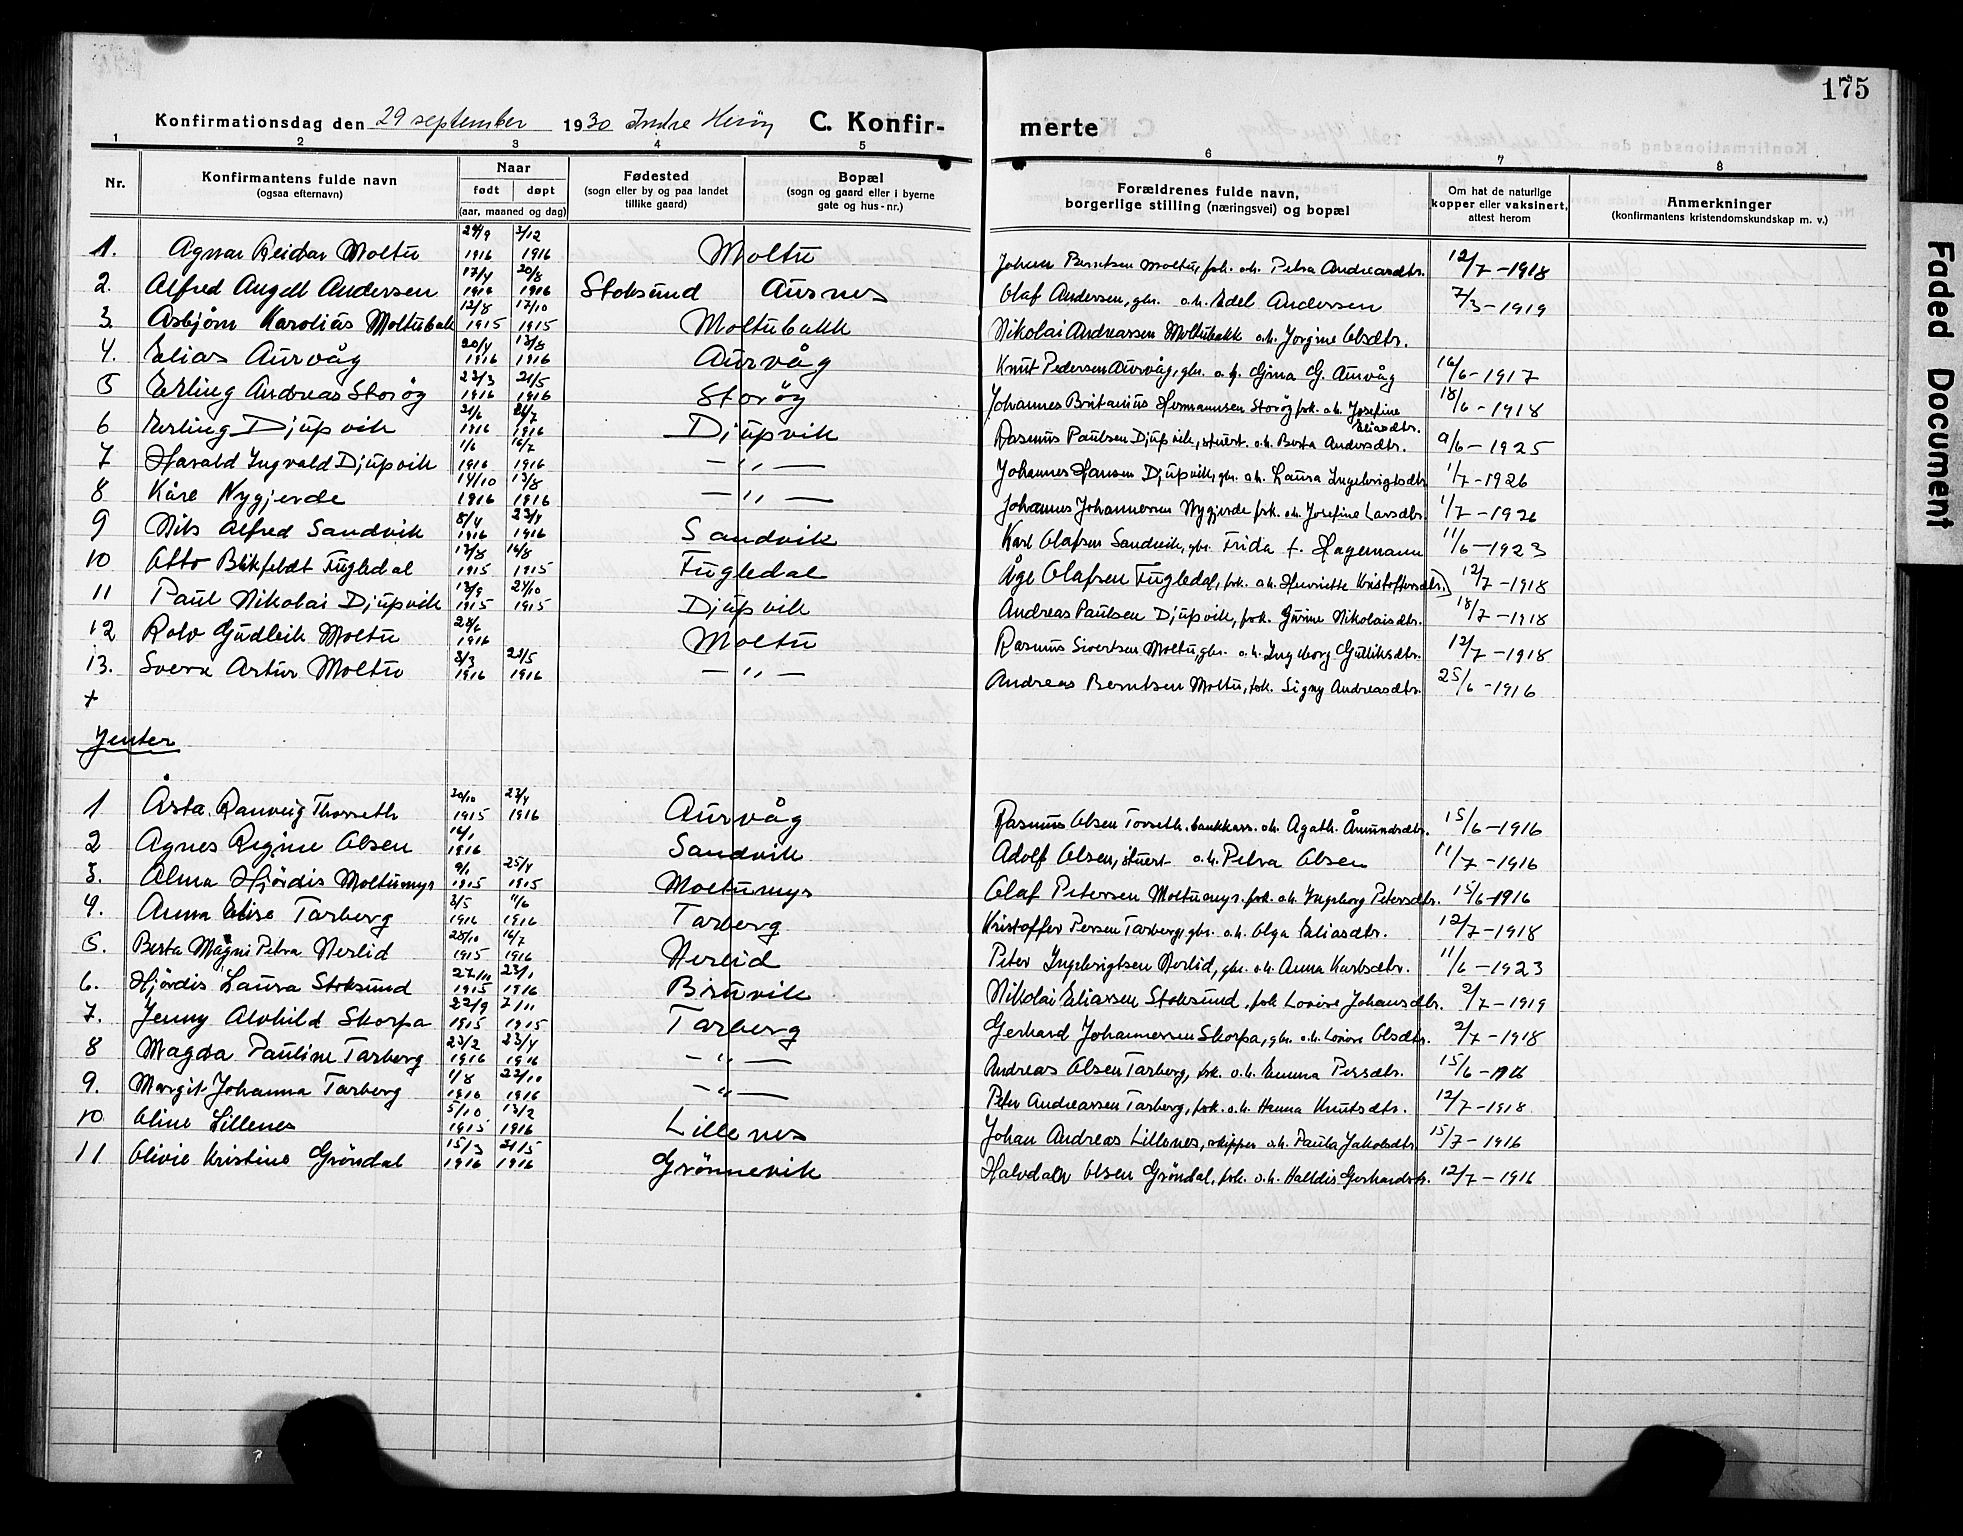 175
Konfirmationsdag den 29 september 1930 Indre Herøy C. Konfir- merte
1 2 3 4 5 6 7 8
Nr. Konfirmantens fulde navn (ogsaa efternavn) Naar født døpt (aar, maaned og dag) Fødested (sogn eller by og paa landet tillike gaard) Bopæl (sogn og gaard eller i byerne gate og hus-nr.) Forældrenes fulde navn, borgerlige stilling (næringsvei) og bopæl Om hat de naturlige kopper eller vaksinert, attest herom Anmerkninger (konfirmantens kristendomskundskap m. v.)
1. Agnar Reidar Moltu 24/9 1916 3/12 1916 Moltu Johan Berntsen Moltu, fsk. o.h. Petra Andreasdtr. 12/7-1918
2. Alfred Angell Andersen 17/4 1916 20/8 1916 Stoksund Aursnes Olaf Andersen, gbr. o.h. Edel Andersen 7/3-1919
3. Asbjørn Karolius Moltubak 12/8 1915 17/10 1915 Moltubakk Nikolai Andreassen Moltubakk o.h. Jorgine Olsdtr.
4. Elias Aurvåg 20/4 1916 13/8 1916 Aurvåg Knut Pedersen Aurvåg, gbr. o.h. Gina G. Aurvåg 16/6-1917
5 Erling Andreas Storøy 23/3 1916 21/5 1916 Storøy Johannes Britanius Hermannsen Storøy fsk. o.h. Josefine Eliasdtr. 18/6-1918
6 Erling Djupvik 21/6 1916 24/7 1916 Djupvik Rasmus Paulsen Djupvik, stuert. o.h. Berta Andersdtr. 9/6-1925
7 Harald Ingvald Djupvik 1/6 1916 16/7 1916 — " — Johannes Hansen Djupvik, gbr. o.h. Laura Ingebrigtsdtr. 1/7-1926
8 Kåre Nygjerde 14/10 1916 13/8 1916 — " — Johannes Johannessen Nygjerde fsk. o.h. Josefine Larsdtr. 1/7-1926
9 Nils Alfred Sandvik 8/4 1916 23/4 1916 Sandvik Karl Olafsen Sandvik, gbr. Frida f. Hagemann 11/6-1923
10 Otto Blikfeldt Fugledal 13/8 1915 16/8 1915 Fugledal Åge Olafsen Fugledal, fsk. o.h. Henriette Kristoffersdtr. 12/7-1918
11 Paul Nikolai Djupvik 13/9 1915 24/10 1915 Djupvik Andreas Paulsen Djupvik, fsk. Gurine Nikolaisdtr. 18/7-1918
12 Rolv Gudleik Moltu 28/6 1916 Moltu Rasmus Sivertsen Moltu, gbr. o.h. Ingeborg Gulliksdtr. 12/7-1918
13. Sverre Artur Moltu 3/3 1916 28/5 1916 — " — Andreas Berntsen Moltu, fsk. Signy Andreasdtr. 25/6-1916
+
Jenter
1 Åsta Ranveig Thorseth 30/10 1915 23/4 1916 Aurvåg Rasmus Olsen Torseth. bankkass. o.h. Agath. Åmundsdtr. 15/6-1916
2 Agnes Regine Olsen 16/1 1916 Sandvik Adolf Olsen, stuert o.h. Petra Olsen 11/7-1916
3. Alma Hjördis Moltumyr 9/1 1915 25/4 1915 Moltumyr Olaf Petersen Moltumyr. fsk. o.h. Ingeborg Petersdtr. 15/6-1916
4. Anna Elise Tarberg 3/5 1916 11/6 1916 Tarberg Kristoffer Persen Tarberg, gbr. o.h. Olga Eliasdtr. 12/7-1918
5. Berta Magni Petra Nerlid 28/10 1915 16/7 1916 Nerlid Peter Ingebrigtsen Nerlid, gbr. o.h. Anna Karlsdtr. 11/6-1923
6. Hjördis Laura Stoksund 27/11 1915 23/1 1916 Bruvik Nikolai Eliassen Stoksund, fsk Lovise Johansdtr. 2/7-1919
7. Jenny Alvhild Skorpa 22/9 1915 7/11 1915 Tarberg Gerhard Johannessen Skorpa, gbr. o.h. Lovise Olsdtr. 2/7-1918
8 Magda Pauline Tarberg 23/2 1916 23/4 1916 — " — Andreas Olsen Tarberg, fsk. o.h. Emma Persdtr. 15/6-1916
9. Margit Johanna Tarberg 1/8 1916 22/10 1916 — " — Peter Andreassen Tarberg, fsk. o.h. Hanna Knutsdtr. 12/7-1918
10. Oline Lillenes 5/10 1915 13/2 1916 Lillenes Johan Andreas Lillenes, skipper o.h. Paula Jakobsdtr. 15/7-1916
11 Olivie Kristine Gröndal 15/3 1916 21/5 1916 Grönnevik Halvdan Olsen Gröndal, fsk. o.h. Halldis Gerhardsdtr. 12/7-1916
Faded Document